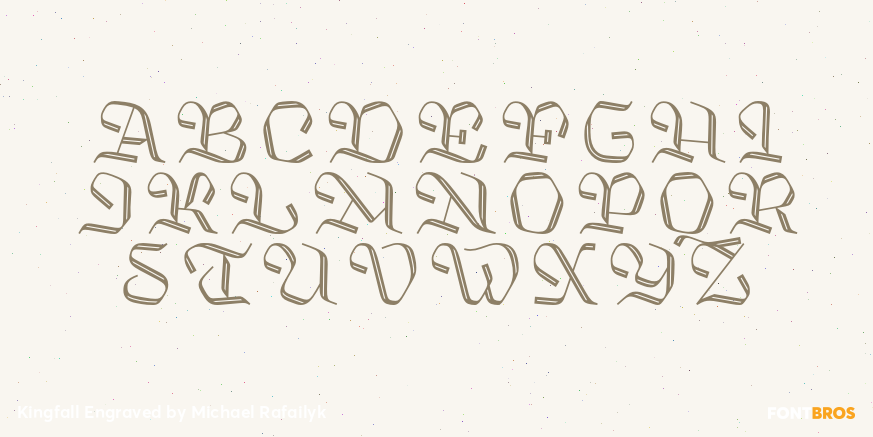 ABCDEFGHI
JKLMNOPQR
STUVWXYZ
Kingfall Engraved by Michael Rafailyk
FONTBROS